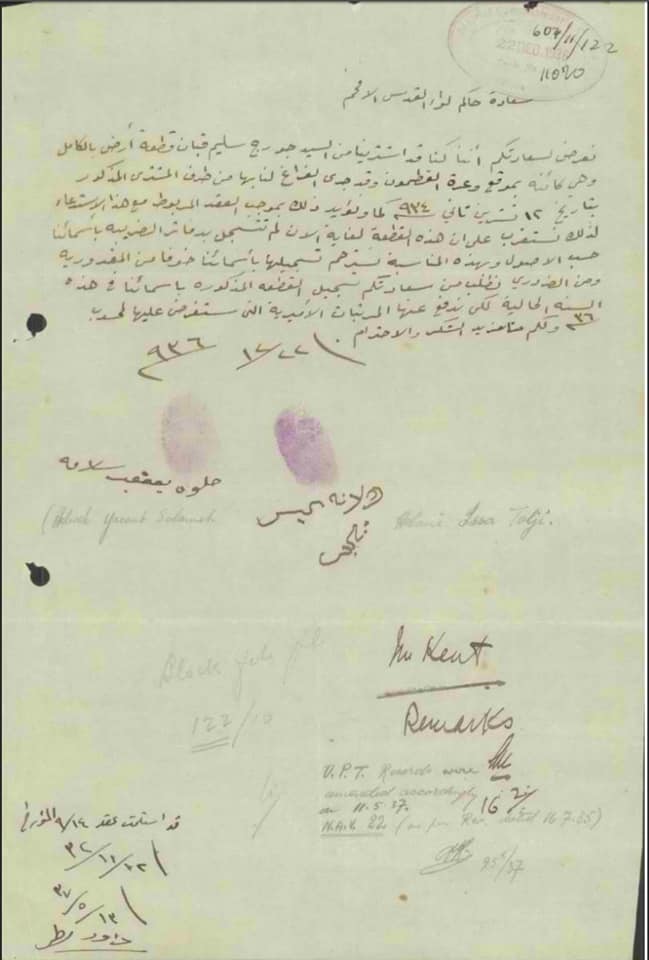 607/11/122
22 DEC 1936
11020
سعادة حاكم لواء القدس الافخم
نعرض لسعادتكم أننا كنا قد اشترينا من السيد جورج سليم قبان قطعة أرض بالكامل
وهي كائنه بموقع وعرة القطمون وقد جرى الفراغ لنا بها من طرف المشتري المذكور
بتاريخ ١٢ تشرين ثاني ٩٣٤ كما ونؤيد ذلك بموجب العقد المربوط مع هذا الاستدعاء
لذلك نستغرب على ان هذه القطعة لغاية الان لم تتسجل بدفاتر الضريبه بأسمائنا
حسب الاصول وبهذه المناسبة نسترحم تسجيلها بأسمائنا خوفا من المغدوريه
ومن الضروري نطلب من سعادتكم تسجيل القطعه المذكوره باسمائنا في هذه
السنه الحالية لكي ندفع عنها المرتبات الأميرية التي ستفرض عليها
٣٦ ولكم منا مزيد الشكر والاحترام
٢٢/١٢/٩٣٦
حلوه يعقوب سلامه
(Helweh Yacoub Salameh
Issa Tolji.
Mr Kent
Remarks
122/10
U.P.T. Records were
amended accordingly
on 11.5.37.
16
N.A.V. 22. (as per Rev. dated 16.7.35)
25/5/37
قد استلمت عقد ٩/١٤ المؤرخ
٣٤/١١/١٢
٣٧/٥/١٣
داود